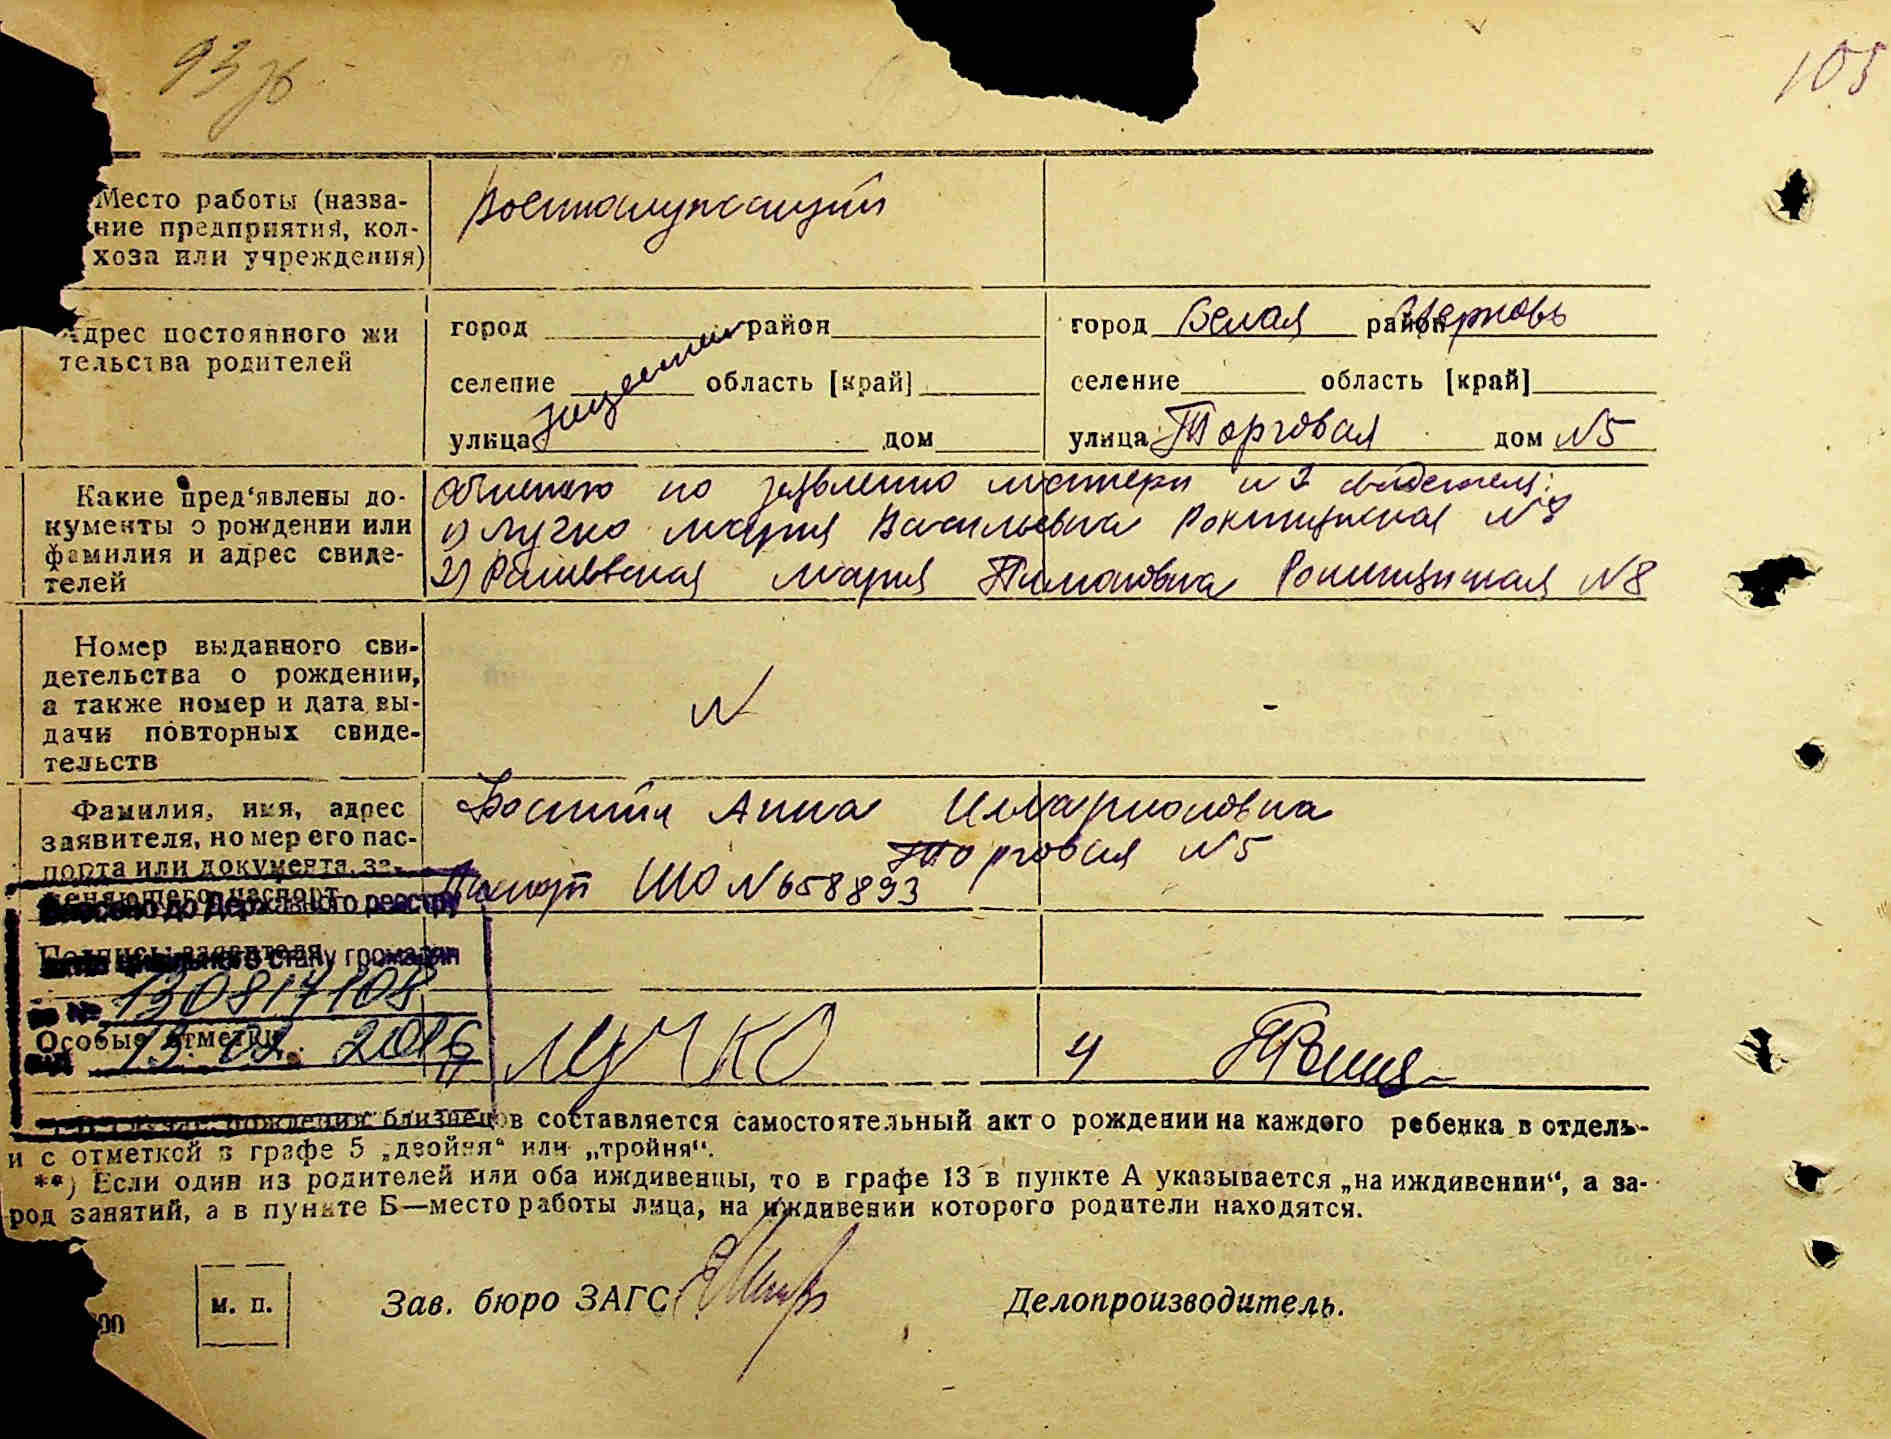 93
105
Место работы (назва-
ние предприятия, кол-
хоза или учреждения)
Военнослужащий
Адрес постоянного жи
тельства родителей
город район
селение область [край]
улица дом
город Белая район Церковь
селение область [край]
улица Торговая дом №5
Какие пред'явлены до-
кументы о рождении или
фамилия и адрес свиде-
телей
по матери и 2
1) Лучко Мария Васильевна №8
2) Мария №8
Номер выданного сви-
детельства о рождении,
а также номер и дата вы-
дачи повторных свиде-
тельств
N
-
Фамилия, имя, адрес
заявителя, номер его пас-
порта или документа, за-
меняющего паспорт
Анна Илларионовна
Торговая №5
Паспорт ШЮ №658893
Внесено до Державного реєстру
стану громадян
за № 130817108
від 2016
Подпись заявителя
Особые отметки
ЛУЧКО
рождения близнецов составляется самостоятельный акт о рождении на каждого ребенка в отдель-
и с отметкой в графе 5 „двойня“ или „тройня“.
**) Если один из родителей или оба иждивенцы, то в графе 13 в пункте А указывается „на иждивении“, а за-
род занятий, а в пункте Б—место работы лица, на иждивении которого родители находятся.
м. п.
Зав. бюро ЗАГС
Делопроизводитель.